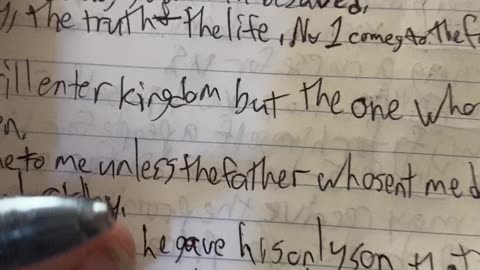 the truth & the life, No 1 comes to the f
ill enter kingdom but the one who
me unless the father who sent me d
he gave his only son